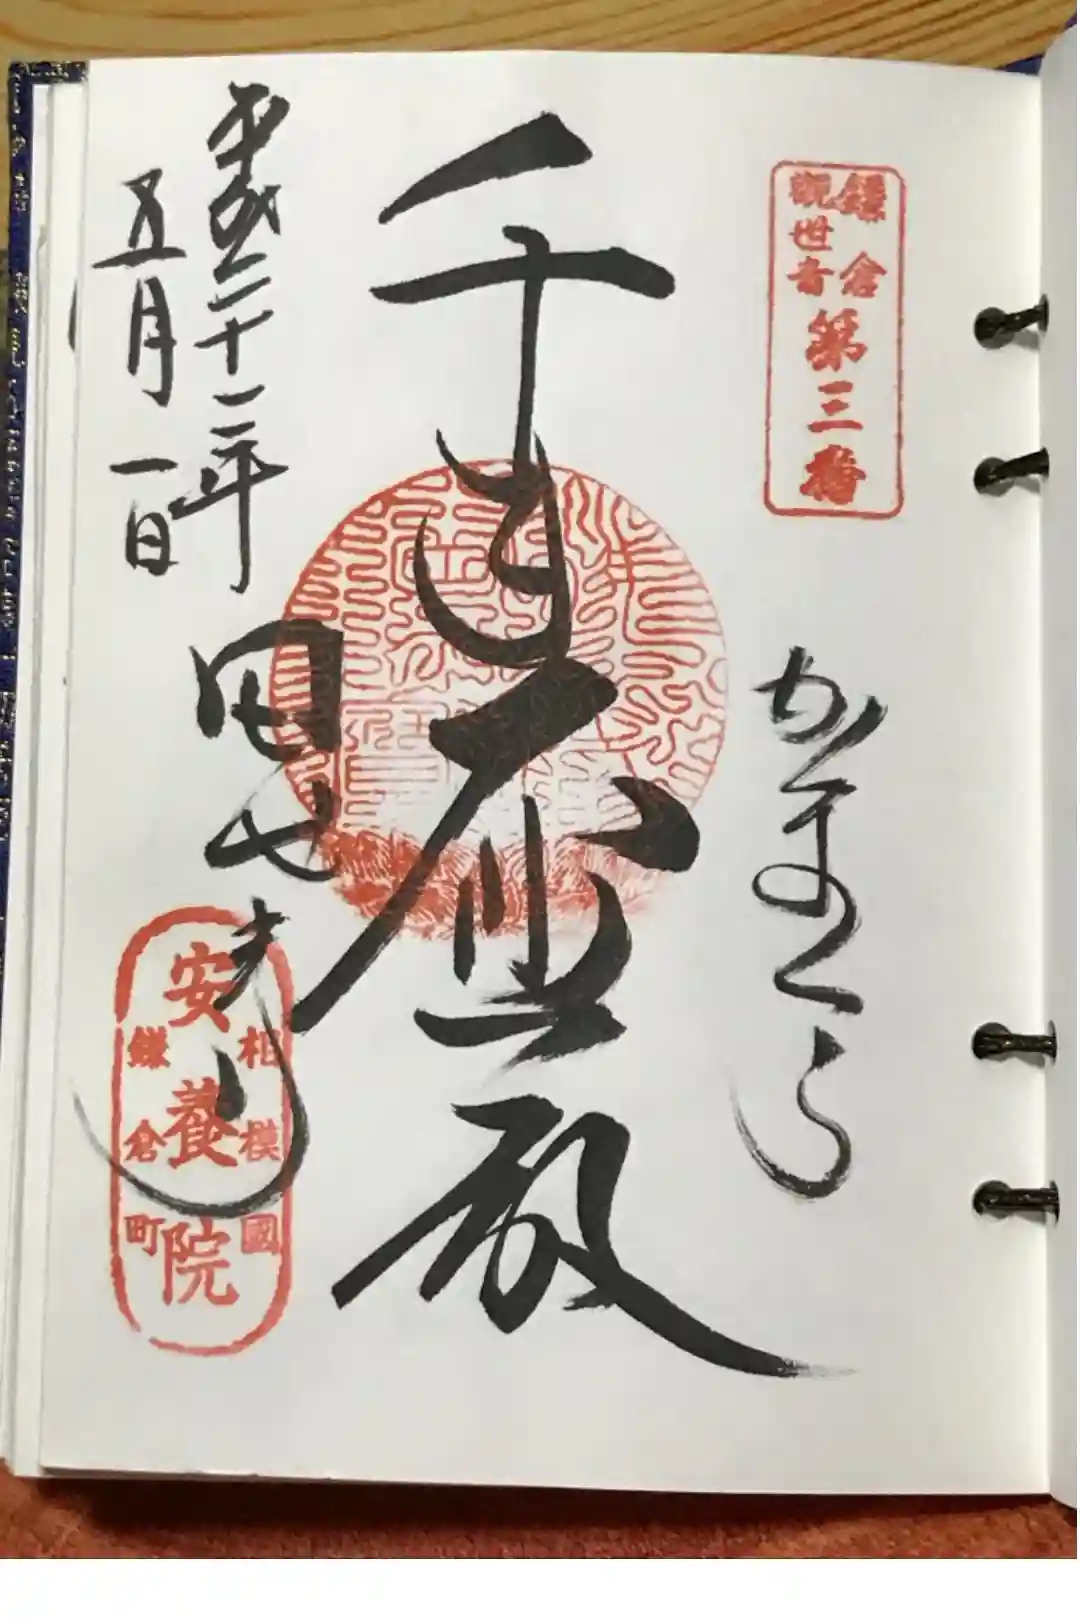 鎌倉
觀世音
第三番
かまくら
千手
殿
平成二十二年
五月一日
田代
相模國
安養院
鎌倉町